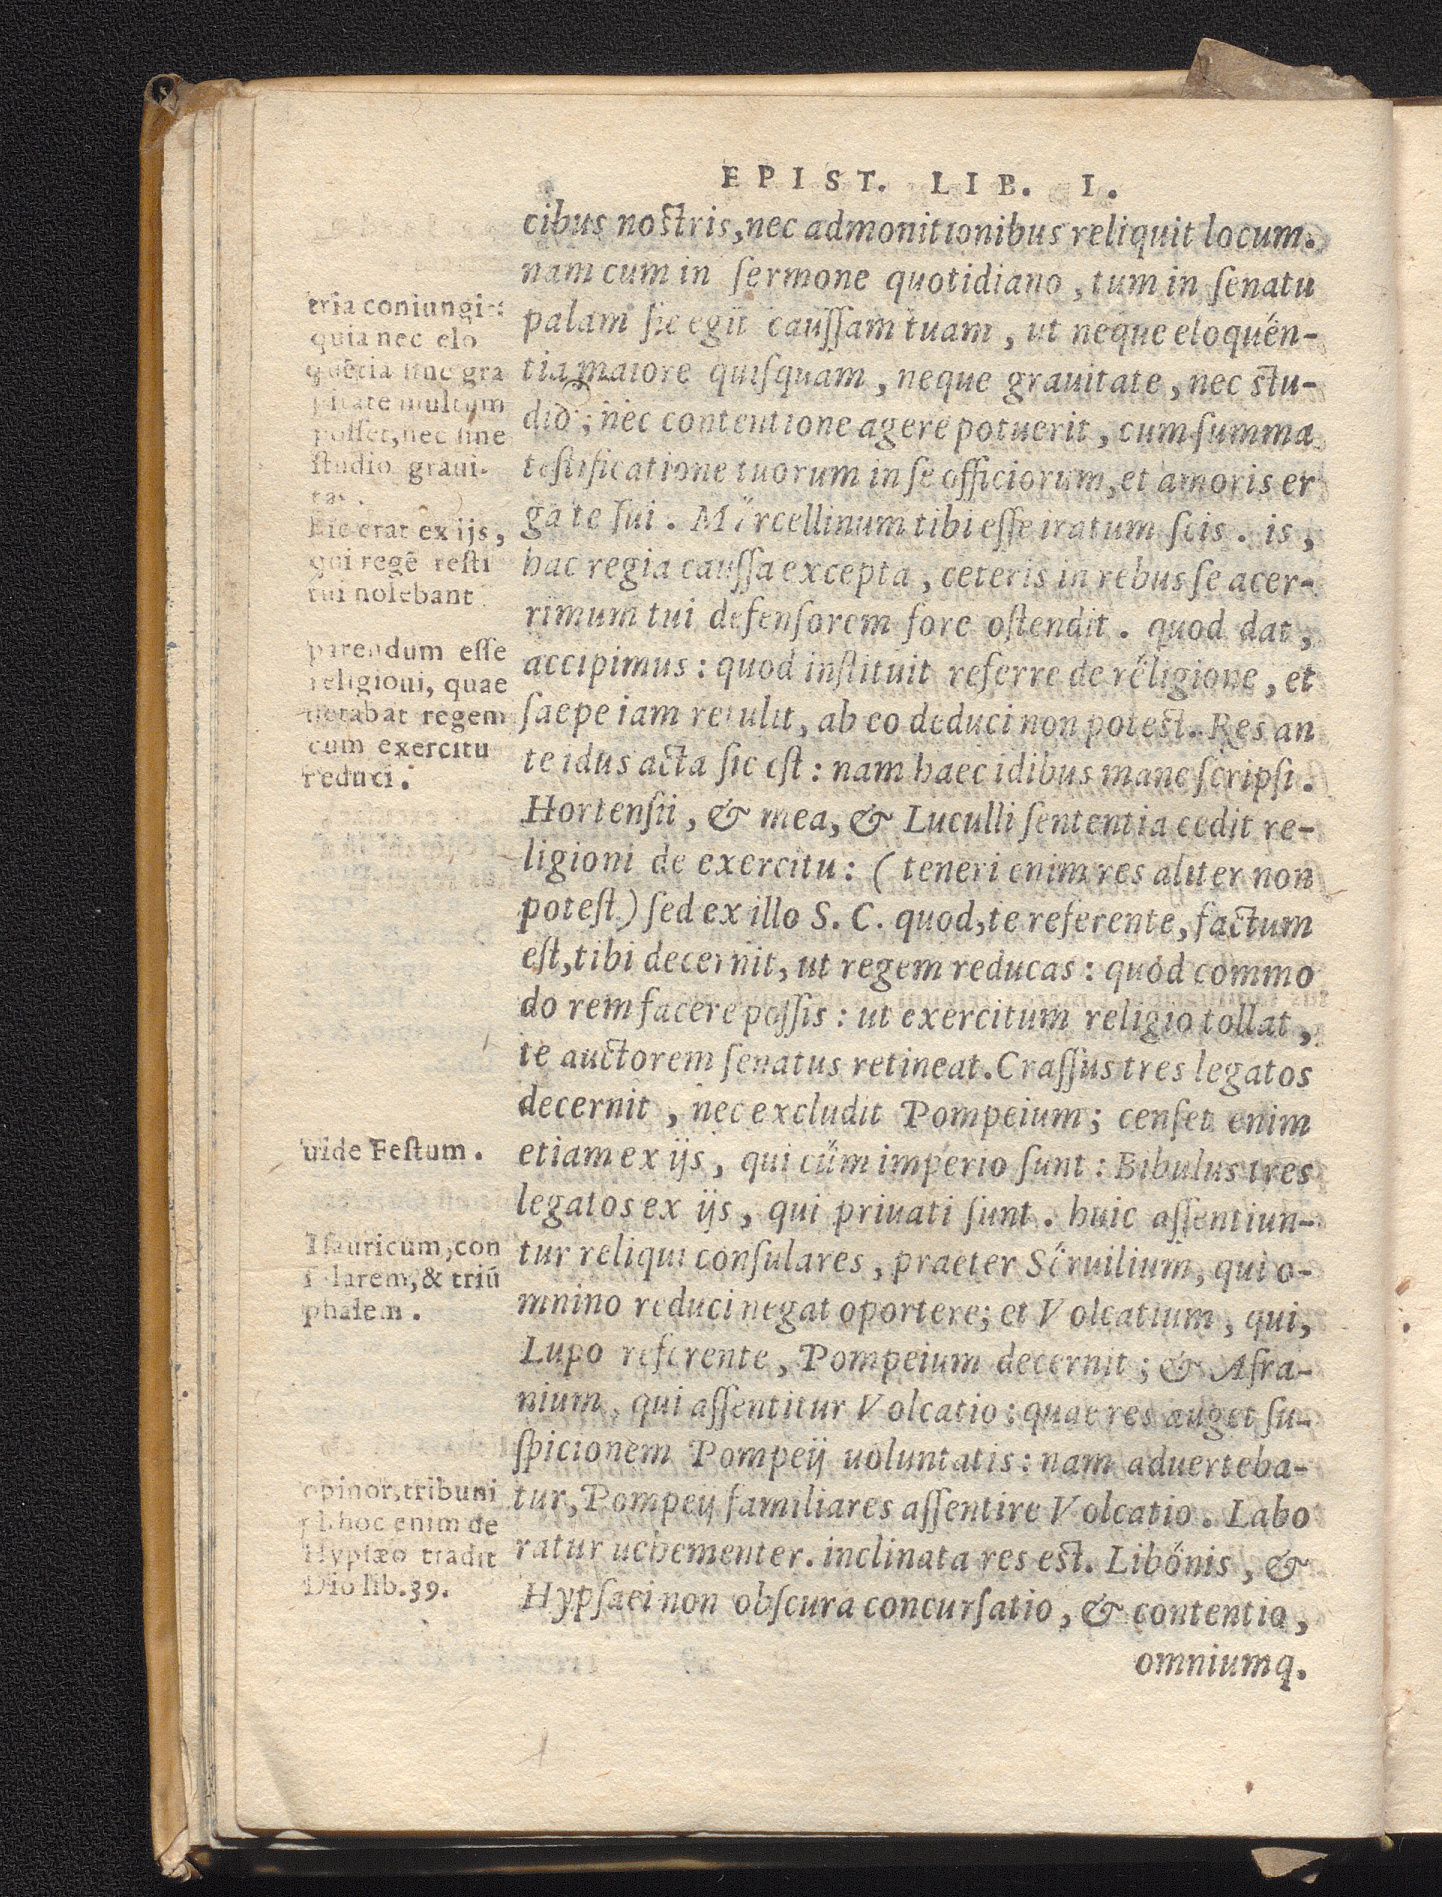 EPIST. LIB. I.
cibus nostris, nec admonitionibus reliquit locum.
nam cum in sermone quotidiano, tum in senatu
palam sic egit caussam tuam, ut neque eloquen-
tia maiore quisquam, neque grauitate, nec stu-
dio; nec contentione agere potuerit, cum summa
testificatione tuorum in se officiorum, et amoris er
ga te sui. Marcellinum tibi esse iratum scis. is,
hac regia caussa excepta, ceteris in rebus se acer-
rimum tui defensorem fore ostendit. quod dat,
accipimus: quod instituit referre de religione, et
saepe iam retulit, ab eo deduci non potest. Res an
te idus acta sic est: nam haec idibus mane scripsi.
Hortensii, & mea, & Luculli sententia cedit re-
ligioni de exercitu: (teneri enim res aliter non
potest) sed ex illo S. C. quod, te referente, factum
est, tibi decernit, ut regem reducas: quod commo
do rem facere possis: ut exercitum religio tollat,
te auctorem senatus retineat. Crassus tres legatos
decernit, nec excludit Pompeium; censet enim
etiam ex ijs, qui cum imperio sunt: Bibulus tres
legatos ex ijs, qui priuati sunt. huic assentiun-
tur reliqui consulares, praeter Seruilium, qui o-
mnino reduci negat oportere; et Volcatium, qui,
Lupo referente, Pompeium decernit; & Afra-
nium, qui assentitur Volcatio: quae res auget su-
spicionem Pompeij uoluntatis: nam aduerteba-
tur, Pompeij familiares assentire Volcatio. Labo
ratur uehementer. inclinata res est. Libonis, &
Hypsaei non obscura concursatio, & contentio,
omniumq.
tria coniungit
quia nec elo
quẽtia sine gra
uitate multum
posset, nec sine
studio graui-
tas.
Hic erat ex ijs,
qui regẽ resti
tui nolebant
parendum esse
religioni, quae
uetabat regem
cum exercitu
reduci.
uide Festum.
Isauricum, con
sularem, & triũ
phalem.
opinor, tribuni
pl. hoc enim de
Hypsæo tradit
Dio lib. 39.